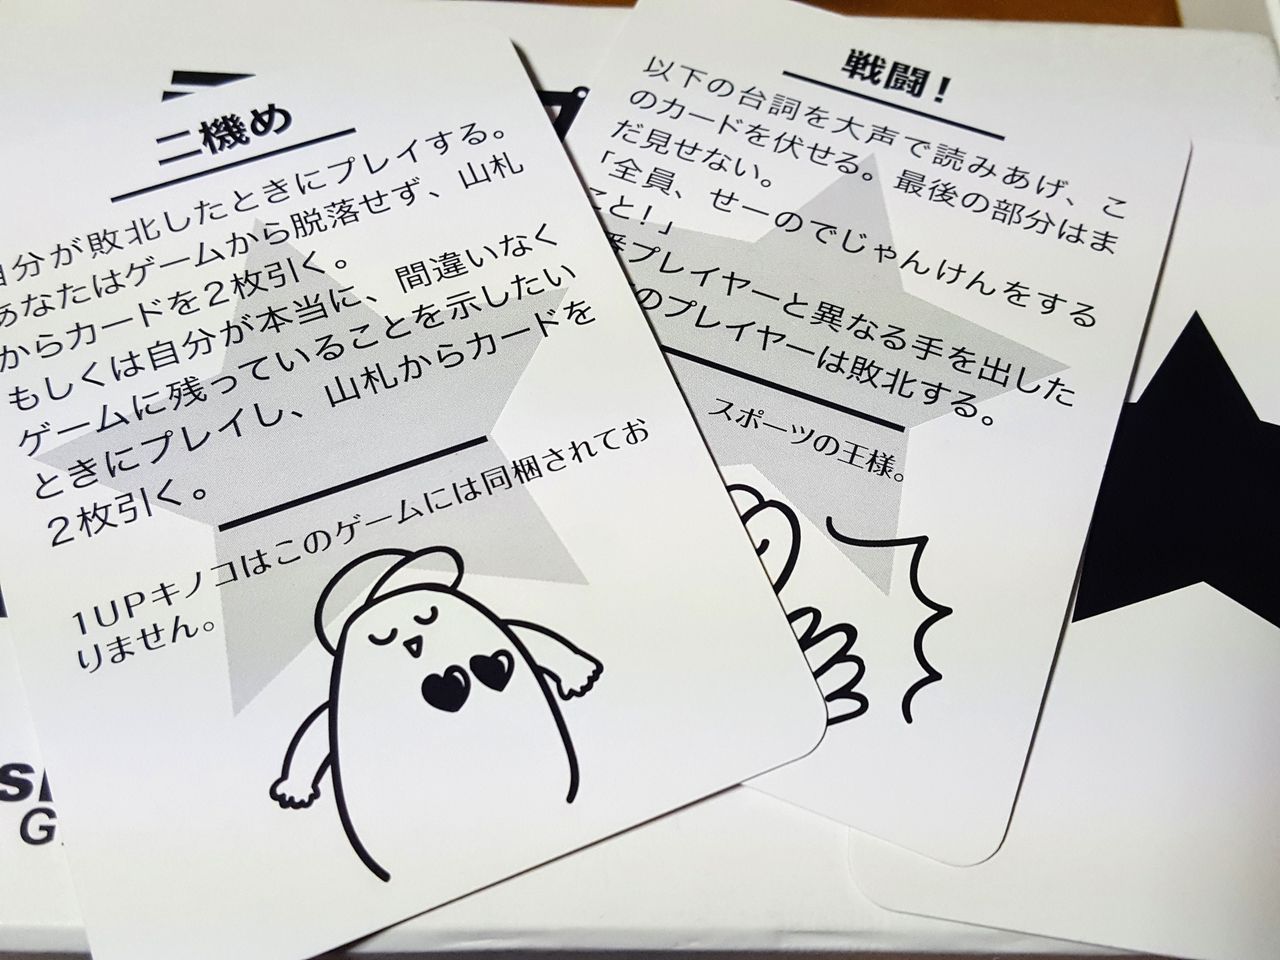 二機め
自分が敗北したときにプレイする。
あなたはゲームから脱落せず、山札
からカードを2枚引く。
もしくは自分が本当に、間違いなく
ゲームに残っていることを示したい
ときにプレイし、山札からカードを
2枚引く。
1UPキノコはこのゲームには同梱されてお
りません。
戦闘！
以下の台詞を大声で読みあげ、こ
のカードを伏せる。最後の部分はま
だ見せない。
「全員、せーのでじゃんけんをする
こと！」
プレイヤーと異なる手を出した
のプレイヤーは敗北する。
スポーツの王様。